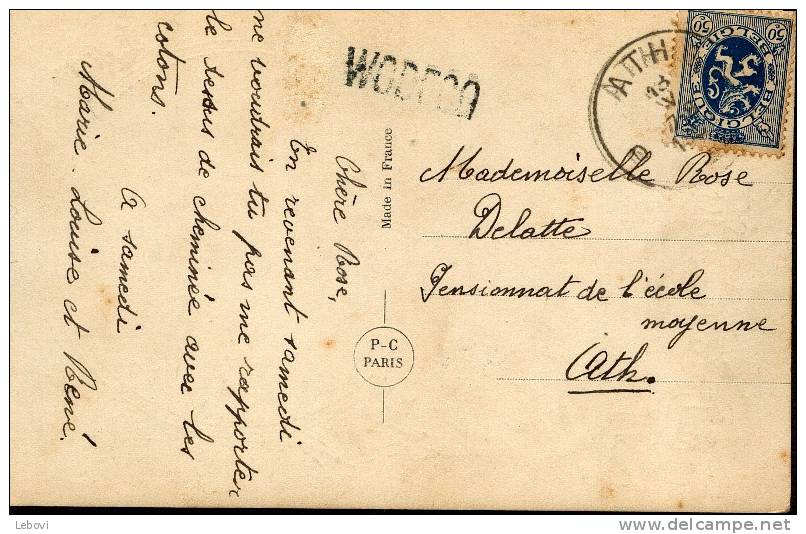 Chère Rose,
En revenant samedi
ne voudrais tu pas me rapporter
le de cheminée avec les
cotons.
A samedi
Marie-Louise et René.
WODECQ
Made in France
P-C
PARIS
ATH
BELGIE
BELGIQUE
50c
50c
Mademoiselle Rose
Delatte
Pensionnat de l'école
moyenne
Ath.
Lebovi
delcampe.net